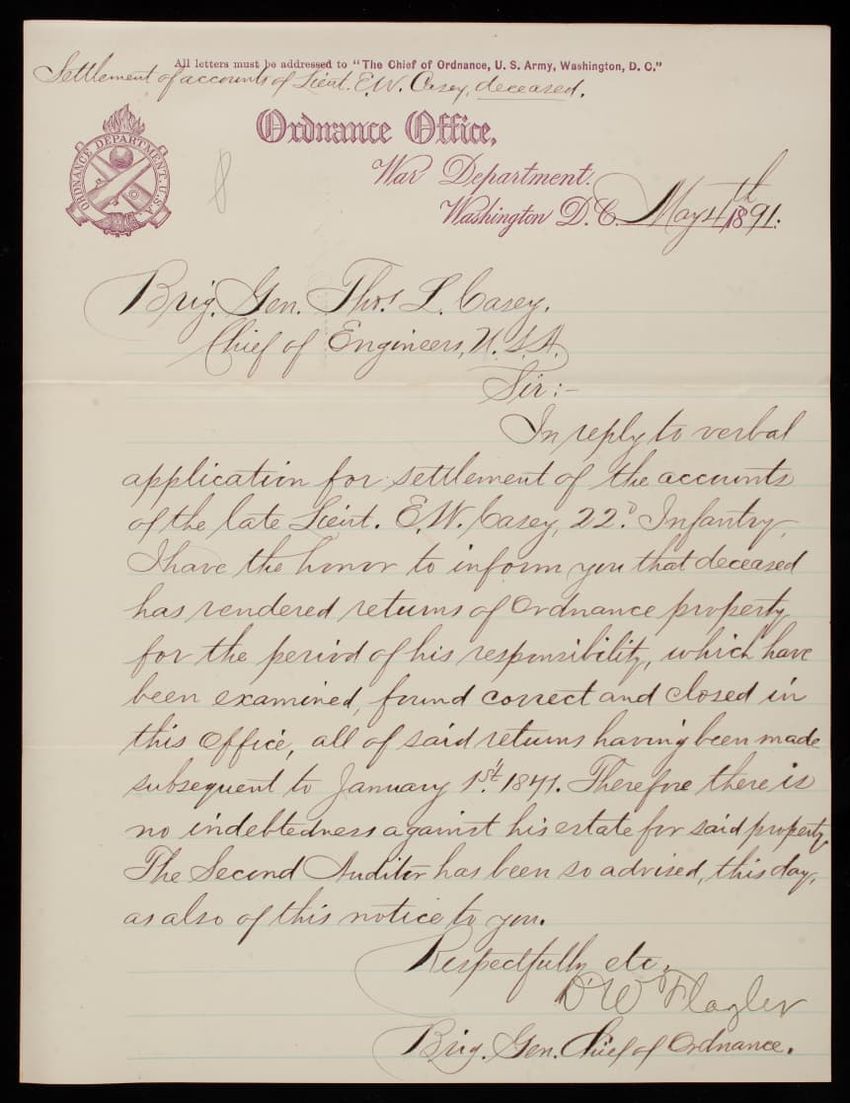 All letters must be addressed to "The Chief of Ordnance, U. S. Army, Washington, D. C."
Settlement of accounts of Lieut. E.W. Casey, deceased.
ORDNANCE DEPARTMENT. U.S.A.
Ordnance Office,
8
War Department.
Washington D.C. May 4th 1891.
Brig. Gen. Thos. L. Casey,
Chief of Engineers, U.S.A.
Sir:-
In reply to verbal
application for settlement of the accounts
of the late Lieut. E.W. Casey, 22d. Infantry,
I have the honor to inform you that deceased
has rendered returns of Ordnance property
for the period of his responsibility, which have
been examined, found correct and closed in
this Office, all of said returns having been made
subsequent to January 1st. 1841. Therefore there is
no indebtedness against his estate for said property.
The Second Auditor has been so advised, this day,
as also of this notice to you.
Respectfully etc.
D W Flagler
Brig. Gen. Chief of Ordnance.